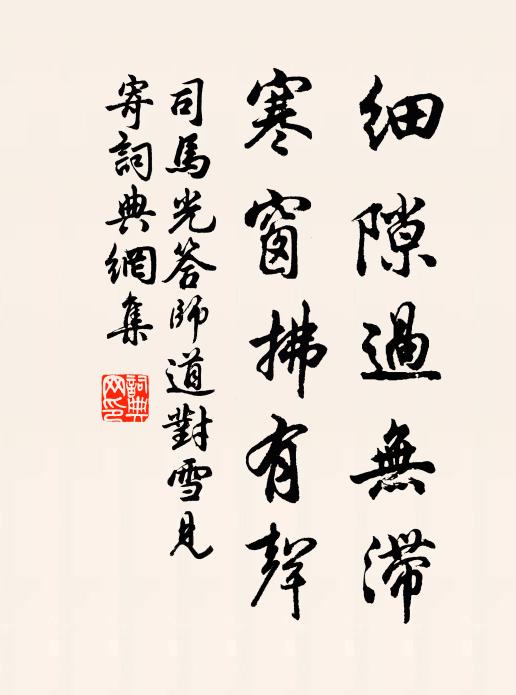 細隙過無滯
寒窗拂有聲
司馬光答師道對雪見
寄詞典網集
詞典
网印